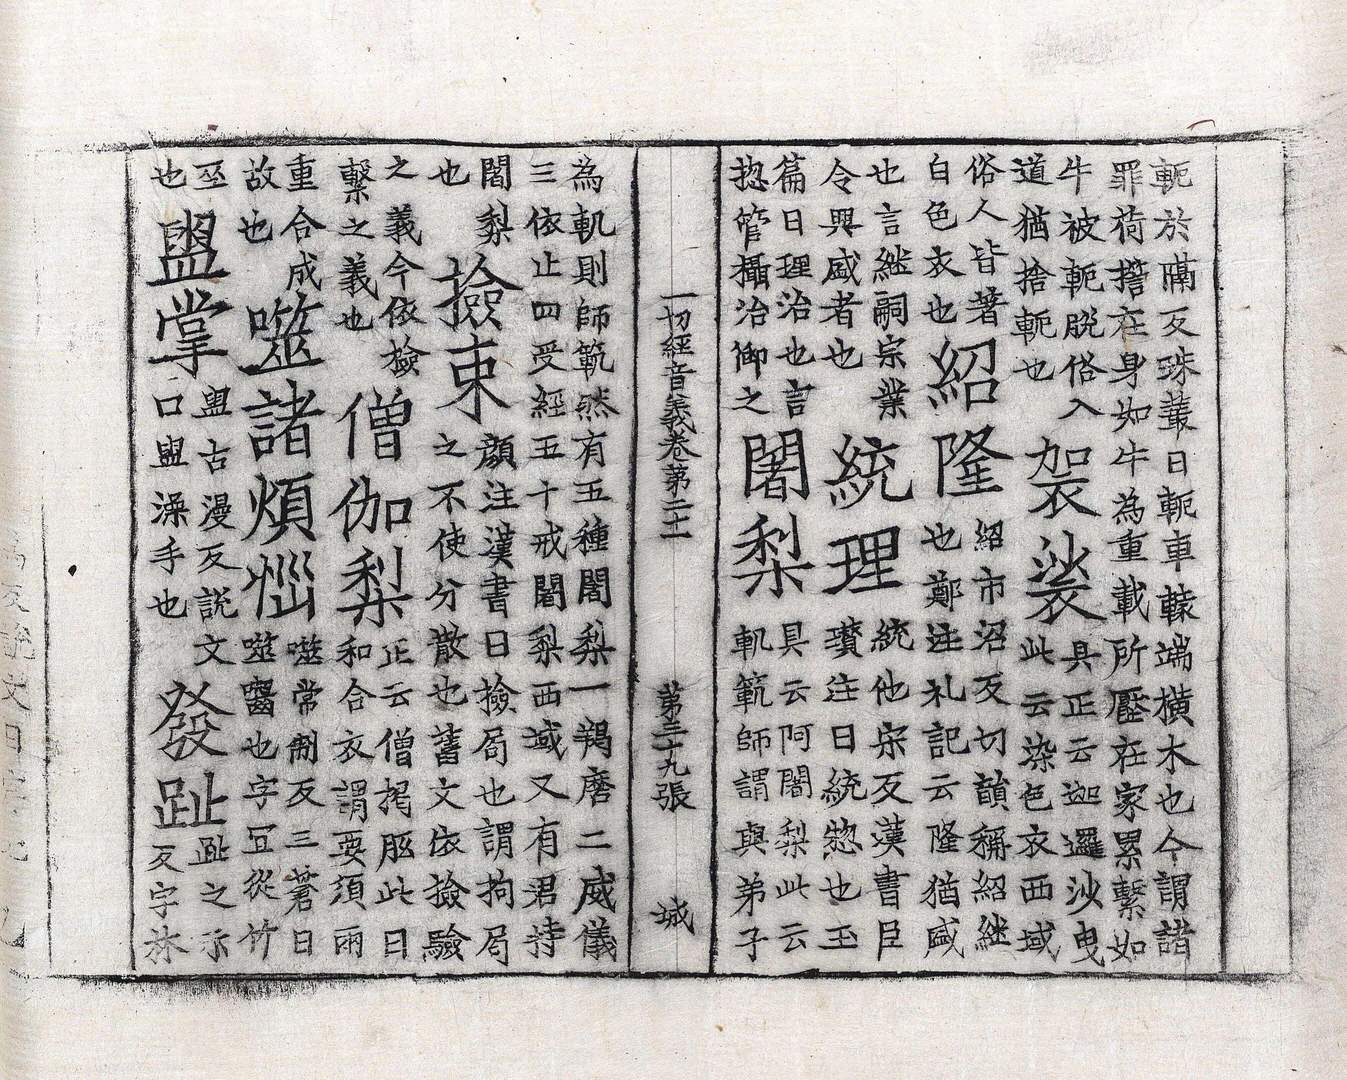 軛於隔反珠叢曰軛車轅端橫木也今謂諸
罪荷擔在身如牛為重載所壓在家累繫如
牛被軛脫俗入
道猶捨軛也
袈裟
具正云迦邏沙曳
此云染色衣西域
俗人皆著
白色衣也
紹隆
紹市沼反切韻稱紹継
也鄭注礼記云隆猶盛
也言継嗣宗業
令興盛者也
統理
統他宋反漢書臣
瓚注曰統惣也玉
篇曰理治也言
揔管攝治御之
闍梨
具云阿闍梨此云
軌範師謂與弟子
一切經音義卷第二十一
第三十九張
城
為軌則師範然有五種闍梨一羯磨二威儀
三依止四受經五十戒闍梨西域又有君持
闍梨
也
撿束
顏注漢書曰撿局也謂拘局
之不使分散也舊文依撿驗
之義今依撿
繫之義也
僧伽梨
正云僧胝此曰
和合衣謂要須兩
重合成
故也
噬諸煩惱
噬常制反三蒼曰
噬嚙也字冝從竹
巫
也
盥掌
盥古漫反說文
曰盥澡手也
發趾
趾之示
反字林